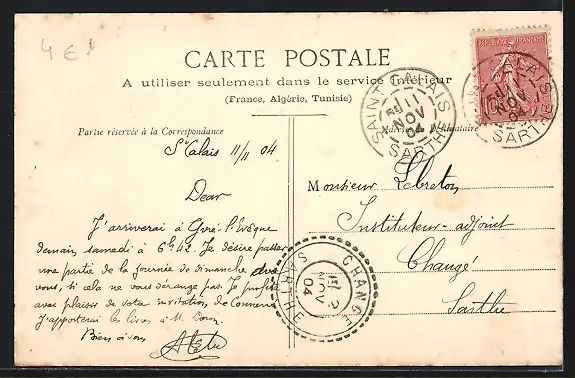 4 €
CARTE POSTALE
A utiliser seulement dans le service Intérieur
(France, Algérie, Tunisie)
Partie réservée à la Correspondance
Adresse du Destinataire
REPUBLIQUE FRANÇAISE
SAINT-CALAIS
11
NOV
04
SARTHE
SAINT-CALAIS
NOV
04
SARTHE
St Calais 11/11 04
Dear
J'arriverai à Yvré-l'Evêque
demain samedi à 6h 42. Je désire passer
une partie de la journée de dimanche avec
vous, si cela ne vous dérange pas. Je profite
avec plaisir de votre invitation, de
J'apporterai les livres à M.
Bien à vous
Monsieur Lebreton
Instituteur-adjoint
Changé
Sarthe
CHANGÉ
12
NOV
04
SARTHE